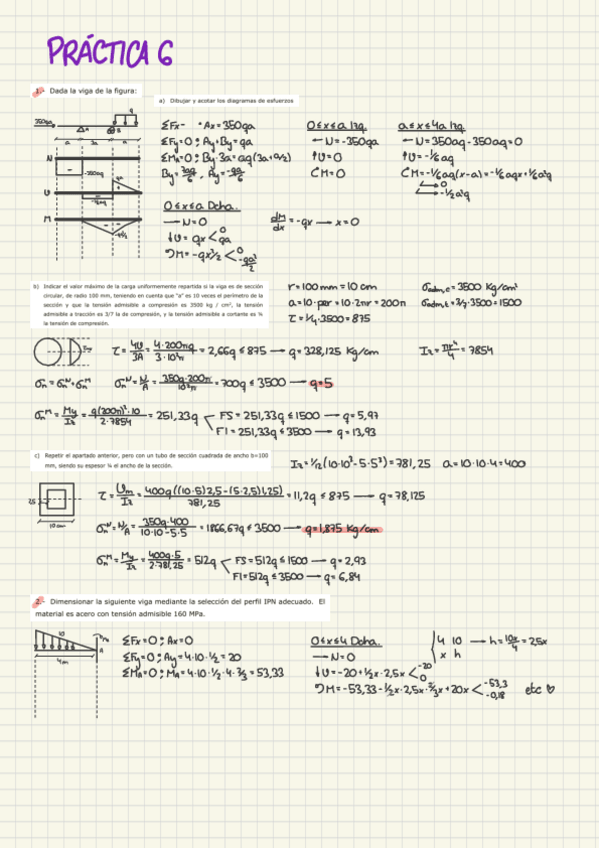 PRÁCTICA 6
1.- Dada la viga de la figura:
a) Dibujar y acotar los diagramas de esfuerzos
350qa
q
A
B
a 3a a
N
-350qa
U
qa
M
ΣFx- · Ax = 350qa
ΣFy = 0 ; Ay + By = qa
ΣMA = 0 ; By·3a = aq(3a + a/2)
By = 7qa/6 , Ay = -qa/6
0 ≤ x ≤ a Izq.
← N = -350qa
↑U = 0
M = 0
a ≤ x ≤ 4a Izq
← N = 350aq - 350aq = 0
↑U = -1/6 aq
M = -1/6 aq(x-a) = -1/6 aqx + 1/6 a²q
0
-1/2 a²q
0 ≤ x ≤ a Dcha.
→ N = 0
↓U = qx < 0 qa
M = -qx²/2 < 0 -qa²/2
dM/dx = -qx → x = 0
b) Indicar el valor máximo de la carga uniformemente repartida si la viga es de sección
circular, de radio 100 mm, teniendo en cuenta que "a" es 10 veces el perímetro de la
sección y que la tensión admisible a compresión es 3500 kg / cm², la tensión
admisible a tracción es 3/7 la de compresión, y la tensión admisible a cortante es ¼
la tensión de compresión.
r = 100 mm = 10 cm
a = 10·per = 10·2πr = 200π
τ = 1/4·3500 = 875
σadm,c = 3500 Kg/cm²
σadm,t = 3/7·3500 = 1500
τ = 4U/3A = 4·200πq/3·10²π = 2,66q ≤ 875 → q = 328,125 Kg/cm
Iz = πr⁴/4 = 7854
σn = σnᴺ + σnᴹ
σnᴺ = N/A = 350q·200π/10²π = 700q ≤ 3500 → q = 5
σnᴹ = My/Iz = q(200π)²·10/2·7854 = 251,33q
FS = 251,33q ≤ 1500 → q = 5,97
FI = 251,33q ≤ 3500 → q = 13,93
c) Repetir el apartado anterior, pero con un tubo de sección cuadrada de ancho b=100
mm, siendo su espesor ¼ el ancho de la sección.
Iz = 1/12(10·10³ - 5·5³) = 781,25 a = 10·10·4 = 400
2,5
10 cm
τ = Um/Iz = 400q((10·5)2,5 - (5·2,5)1,25)/781,25 = 11,2q ≤ 875 → q = 78,125
σnᴺ = N/A = 350q·400/10·10-5·5 = 1866,67q ≤ 3500 → q = 1,875 Kg/cm
σnᴹ = My/Iz = 400q·5/2·781,25 = 512q
FS = 512q ≤ 1500 → q = 2,93
FI = 512q ≤ 3500 → q = 6,84
2.- Dimensionar la siguiente viga mediante la selección del perfil IPN adecuado. El
material es acero con tensión admisible 160 MPa.
10
A
4m
ΣFx = 0 ; Ax = 0
ΣFy = 0 ; Ay = 4·10·1/2 = 20
ΣMA = 0 ; MA = 4·10·1/2·4·2/3 = 53,33
0 ≤ x ≤ 4 Dcha.
→ N = 0
↓U = -20 + 1/2x·2,5x < -20 0
M = -53,33 - 1/2x·2,5x·2/3x + 20x < -53,3 -0,18
4 10
x h
→ h = 10x/4 = 2,5x
etc ♡